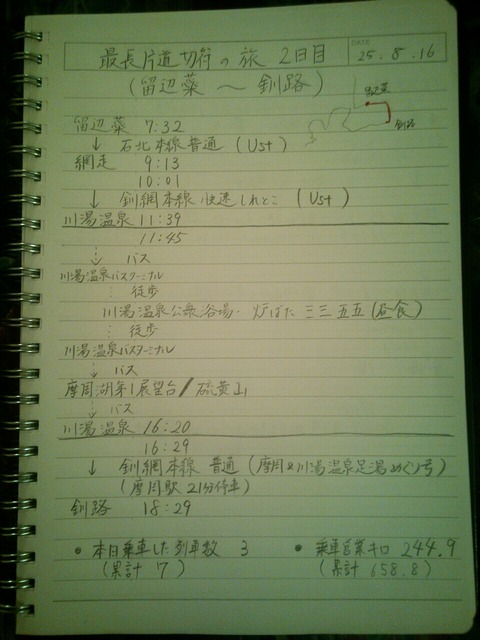 最長片道切符の旅 2日目
DATE
25.8.16
(留辺蘂 ～ 釧路)
留辺蘂
釧路
留辺蘂 7:32
↓ 石北本線 普通 (Ust)
網走 9:13
10:01
↓ 釧網本線 快速しれとこ (Ust)
川湯温泉 11:39
11:45
↓ バス
川湯温泉バスターミナル
徒歩
川湯温泉公衆浴場・炉ばた 三三五五(昼食)
徒歩
川湯温泉バスターミナル
↓ バス
摩周湖第1展望台/硫黄山
↓ バス
川湯温泉 16:20
16:29
↓ 釧網本線 普通 (摩周&川湯温泉足湯めぐり号)
(摩周駅 21分停車)
釧路 18:29
• 本日乗車した列車数 3 • 乗車営業キロ 244.9
(累計 7) (累計 658.8)